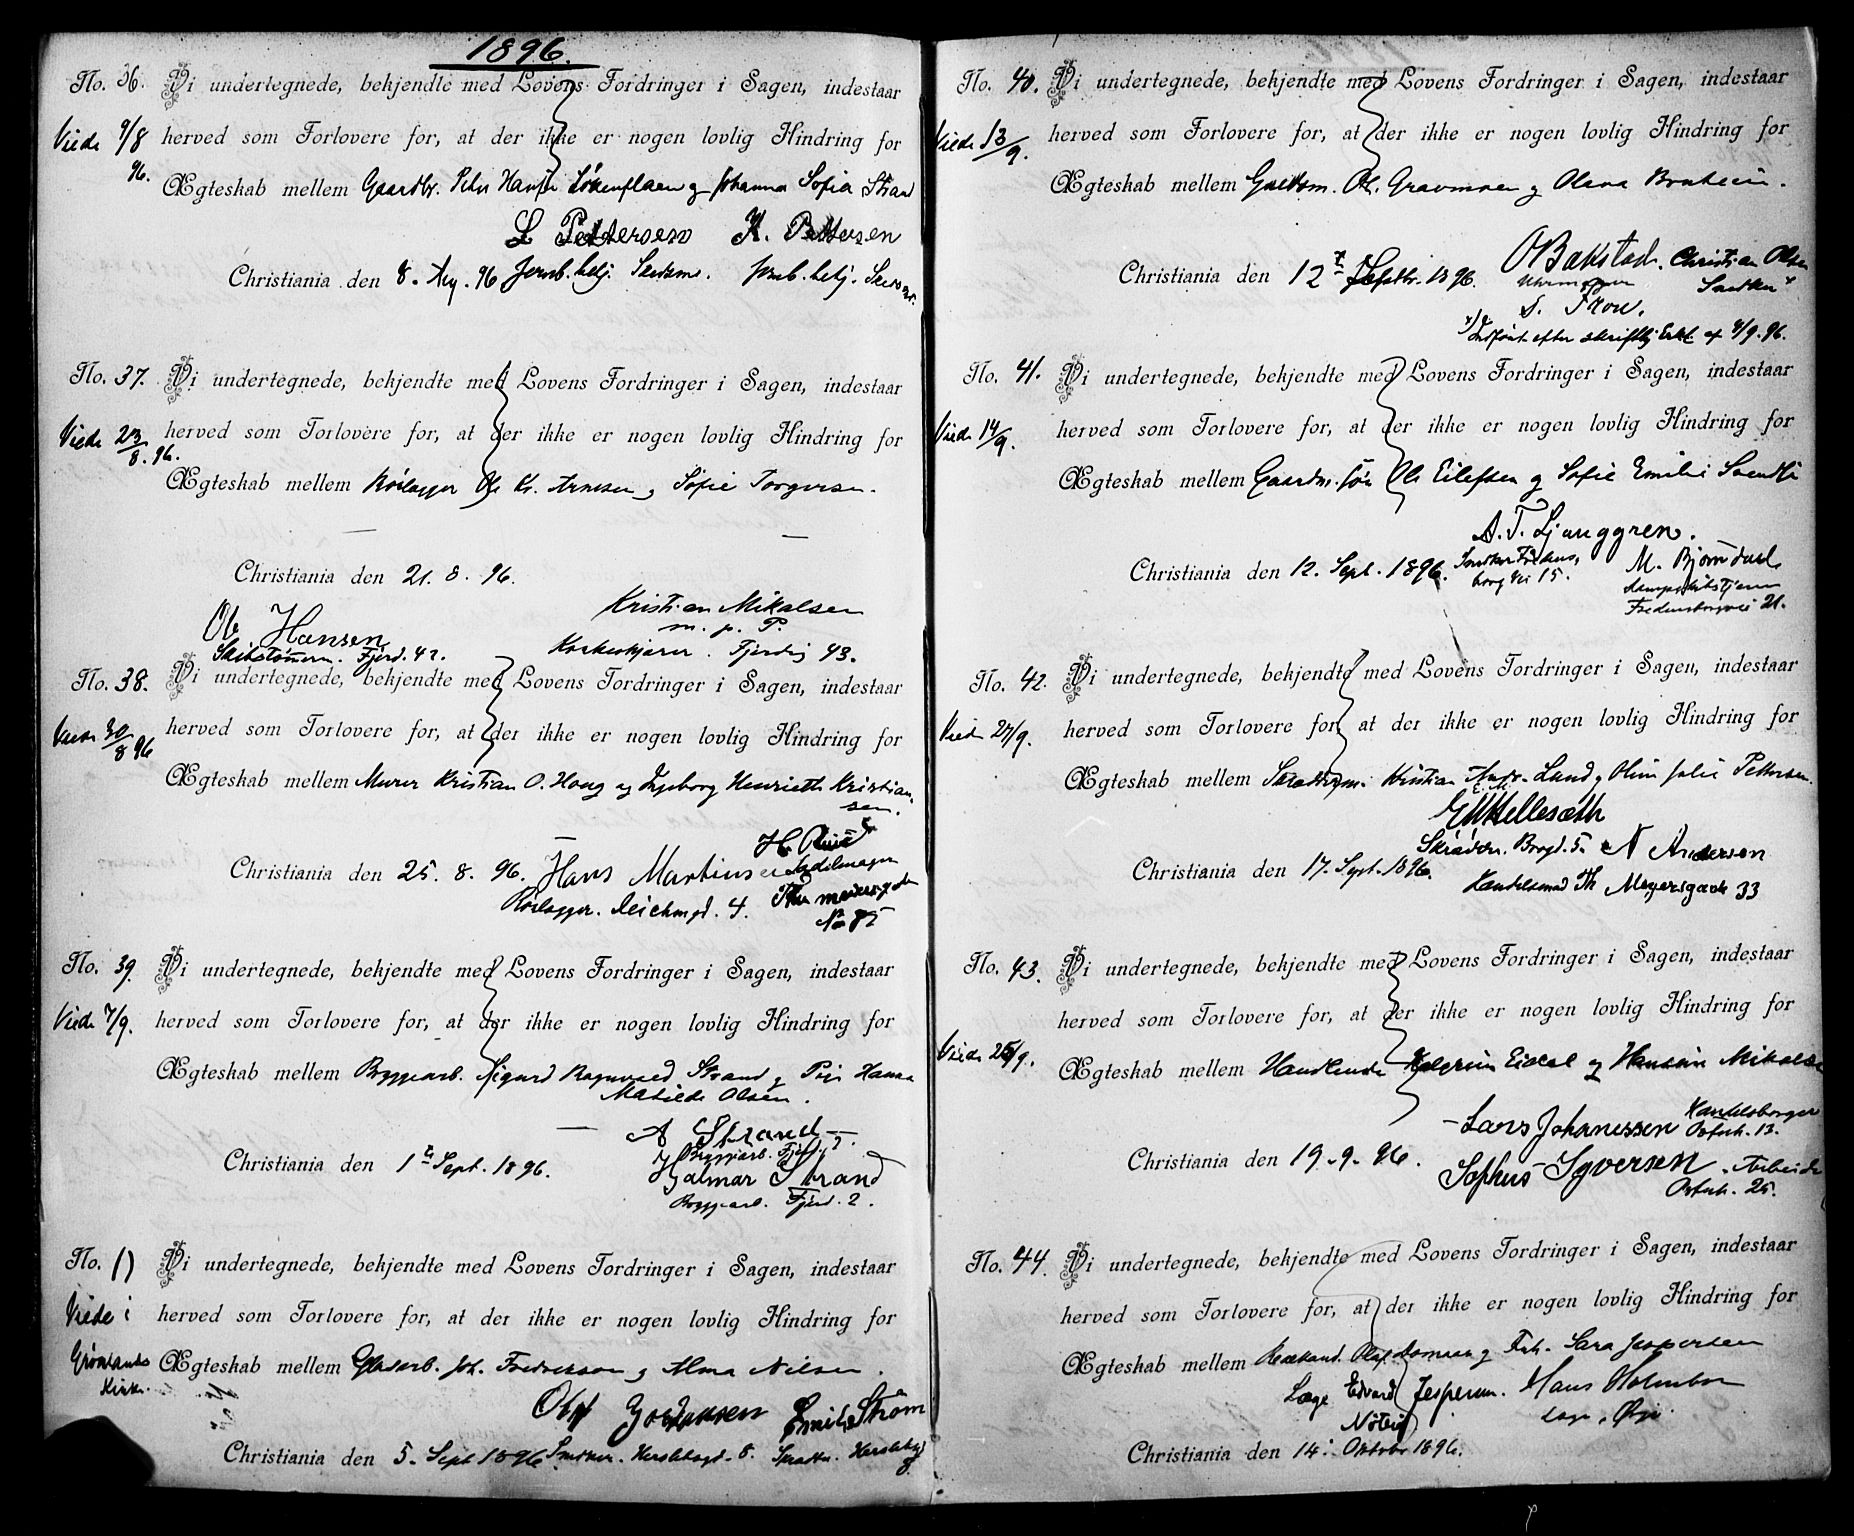 1896.
No. 36. Vi undertegnede, bekjendte med Lovens Fordringer i Sagen, indestaar
Viede 9/8 herved som Forlovere for, at der ikke er nogen lovlig Hindring for
96.
Ægteskab mellem Gaardbr. Peter Hansen og Johanna Sofia Strand
L Pettersen K. Pettersen
Christiania den 8. Aug. 96 Jernb. betj.
No. 37. Vi undertegnede, bekjendte med Lovens Fordringer i Sagen, indestaar
Viede 23/8.96. herved som Forlovere for, at der ikke er nogen lovlig Hindring for
Ægteskab mellem Rørlægger Ole Kr. Arnesen og Sofie Torgersen.
Christiania den 21. 8. 96.
Kristian Mikalsen
m. p. P.
Ole Hansen
Skibstømmerm. Fjerd. 42. Korkeskjærer. Fjerding 43.
No. 38. Vi undertegnede, bekjendte med Lovens Fordringer i Sagen, indestaar
Viede 30/8 96 herved som Forlovere for, at der ikke er nogen lovlig Hindring for
Ægteskab mellem Murer Kristian O. Haug og Ingeborg Henriette Kristian-
sen.
Christiania den 25. 8. 96. Hans Martinsen
Rørlægger. Deichmgd. 4. Thv meiersgade
No 85
No. 39. Vi undertegnede, bekjendte med Lovens Fordringer i Sagen, indestaar
Viede 7/9. herved som Forlovere for, at der ikke er nogen lovlig Hindring for
Ægteskab mellem Bryggearb. Sigurd Ragnvald Strand og Pige Hanna
Matilde Olsen.
A Strand
Bryggearb. Fjerd. 2
Christiania den 1ste Sept. 1896. Hjalmar Strand
Bryggearb. Fjerd. 2.
No. 17 Vi undertegnede, bekjendte med Lovens Fordringer i Sagen, indestaar
Viede i herved som Forlovere for, at der ikke er nogen lovlig Hindring for
Grønlands Kirke. Ægteskab mellem Joh. Fredriksson og Alma Nilsen.
Emil Strøm
Christiania den 5. Sept 1896 Snedker. Herslebsgd. 8. Skrædder. Herslebsgd
8.
No. 40. Vi undertegnede, bekjendte med Lovens Fordringer i Sagen, indestaar
Viede 13/9. herved som Forlovere for, at der ikke er nogen lovlig Hindring for
Ægteskab mellem Ol. Gravmoen og Olava
Christiania den 12te Septbr. 1896. O Bakstad. Christian Olsen
Uhrmager Snedker
S. Thou.
Indført efter skriftlig Erkl. af 9/9. 96.
No. 41. Vi undertegnede, bekjendte med Lovens Fordringer i Sagen, indestaar
Viede 14/9. herved som Forlovere for, at der ikke er nogen lovlig Hindring for
Ægteskab mellem Ole Eilefsen og Sofie Emilie
A. T. Ljunggren.
Christiania den 12. Sept. 1896. Snedker Fredens-
borgvei 15. M. Bjørndal
Fredensborgvei 21.
No. 42. Vi undertegnede, bekjendte med Lovens Fordringer i Sagen, indestaar
Viede 27/9. herved som Forlovere for, at der ikke er nogen lovlig Hindring for
Ægteskab mellem Kristian Andr. Lund og Oline Julie Pettersen.
E. M. Hellesæth
Skrædder. Borgd. 5 N Andersen
Christiania den 17. Sept. 1896.
Handelsmand Th Meyersgade 33
No. 43. Vi undertegnede, bekjendte med Lovens Fordringer i Sagen, indestaar
herved som Forlovere for, at der ikke er nogen lovlig Hindring for
Viede 25/9. Ægteskab mellem Handlende og Mikalsen
Lars Johanessen Handelsborger
Osterh. 13.
Christiania den 19. 9. 96. Sophus Syversen. Arbeider
Osterh. 25.
No. 44. Vi undertegnede, bekjendte med Lovens Fordringer i Sagen, indestaar
herved som Forlovere for, at der ikke er nogen lovlig Hindring for
Ægteskab mellem Olaf og Frk. Sara Jespersen
Læge Edvard Jespersen. Hans Holmboe
Christiania den 14. Oktober 1896.